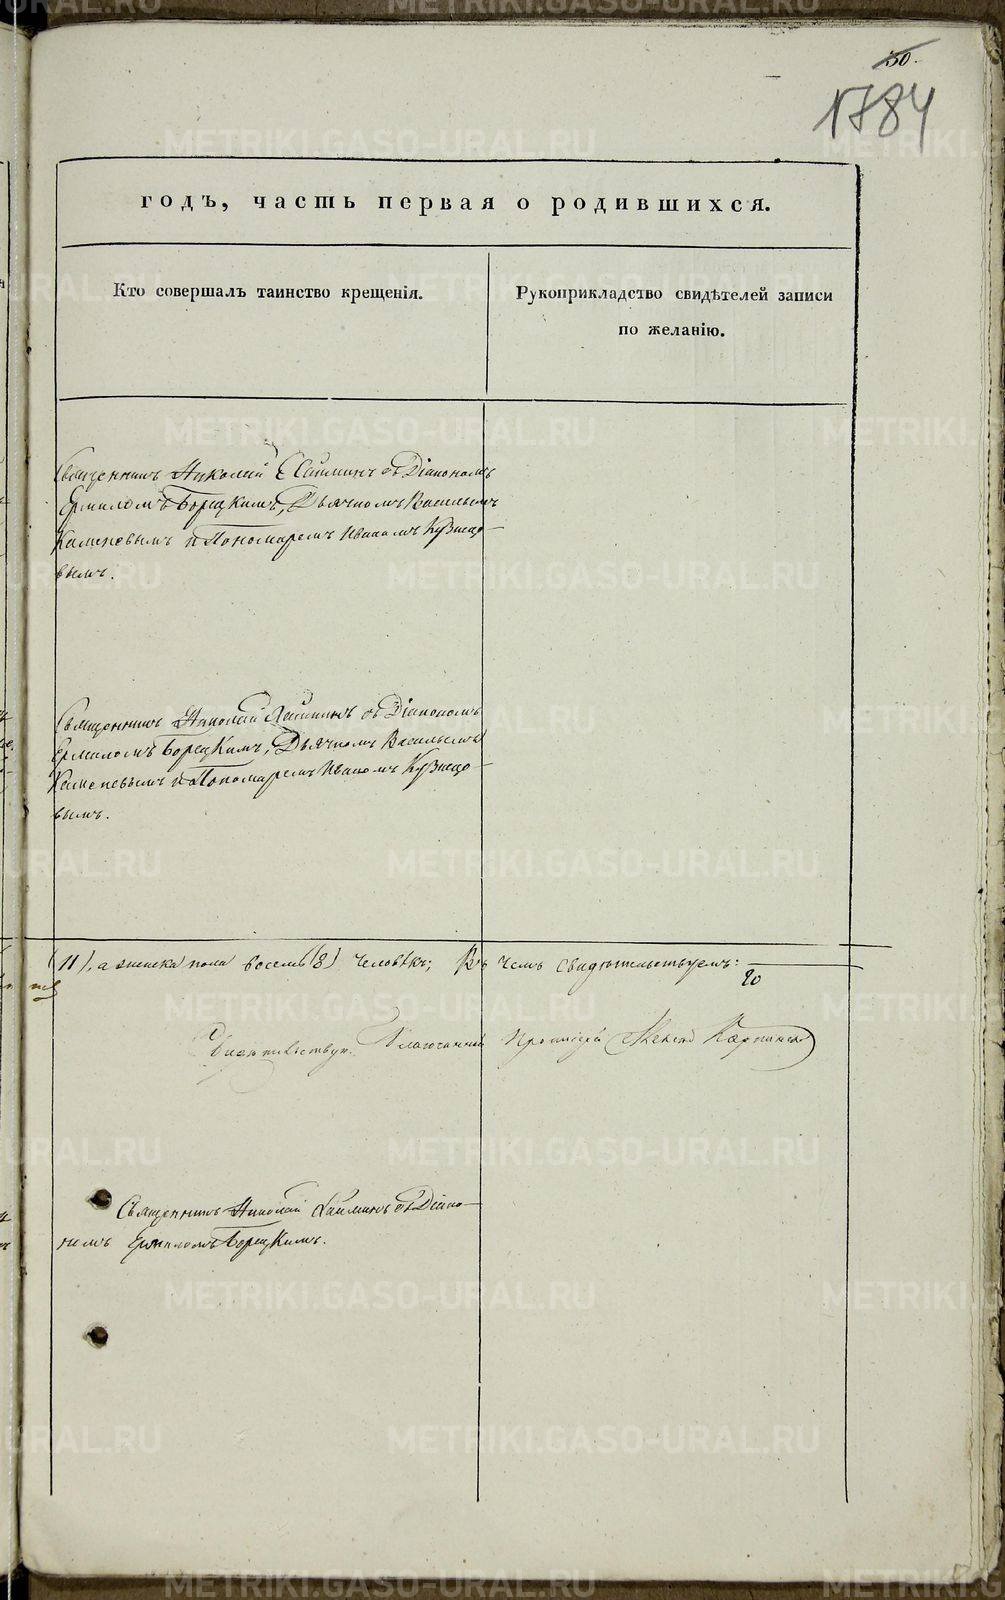 50.
1784
годъ, часть первая о родившихся.
Кто совершалъ таинство крещенія.
Рукоприкладство свидѣтелей записи
по желанію.
Священникъ Николай съ Діакономъ
Ермиломъ Борецкимъ, Дьячкомъ Васильемъ
Каменевымъ и Пономаремъ Иваномъ Кузнецо-
вымъ.
Священникъ Николай съ Діакономъ
Ермиломъ Борецкимъ, Дьячкомъ Васильемъ
Каменевымъ и Пономаремъ Иваномъ Кузнецо-
вымъ.
(11), а женска пола восемь (8) человѣкъ; Въ чемъ свидѣтельствуемъ:
Благочинный
Священникъ Николай съ Діако-
номъ Ермиломъ Борецкимъ.
METRIKI.GASO-URAL.RU